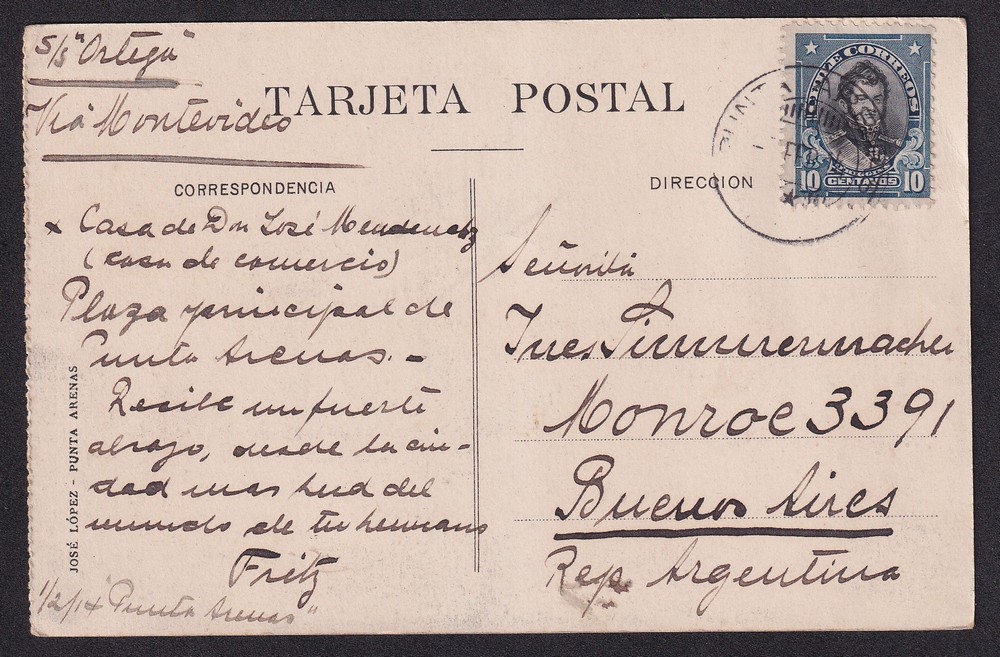 S/S "Ortega"
Via Montevideo
TARJETA POSTAL
CORRESPONDENCIA
x Casa de Don José Menendez
(casa de comercio)
Plaza principal de
Punta Arenas. -
Recibe un fuerte
abrazo, desde la ciu-
dad mas sud del
mundo de tu hermano
Fritz
1/2/14 Punta Arenas"
JOSÉ LÓPEZ - PUNTA ARENAS
DIRECCION
CHILE CORREOS
10 CENTAVOS 10
PUNTA
Señorita
Ines Timmermacher
Monroe 3391
Buenos Aires
Rep. Argentina